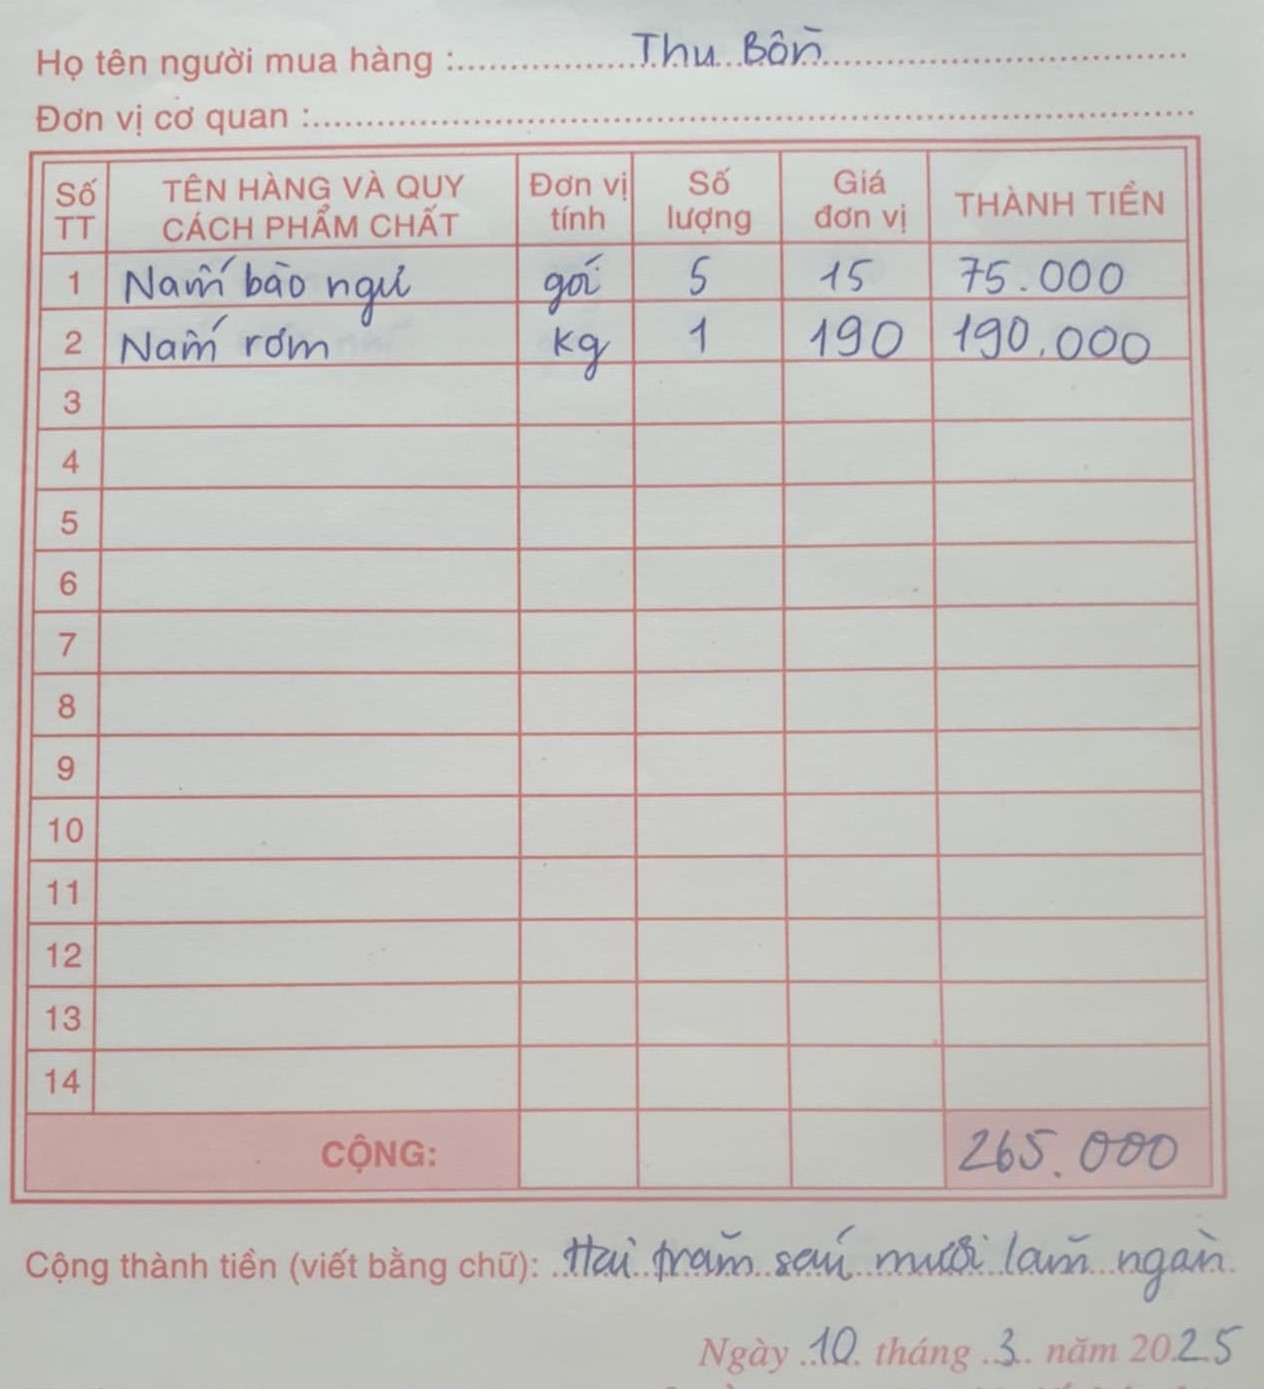 Họ tên người mua hàng : Thu Bồn
Đơn vị cơ quan :
Số TT TÊN HÀNG VÀ QUY CÁCH PHẨM CHẤT Đơn vị tính Số lượng Giá đơn vị THÀNH TIỀN
1 Nấm bào ngư gói 5 15 75.000
2 Nấm rơm kg 1 190 190.000
3
4
5
6
7
8
9
10
11
12
13
14
CỘNG: 265.000
Cộng thành tiền (viết bằng chữ): Hai trăm sáu mươi lăm ngàn
Ngày 10 tháng 3 năm 2025